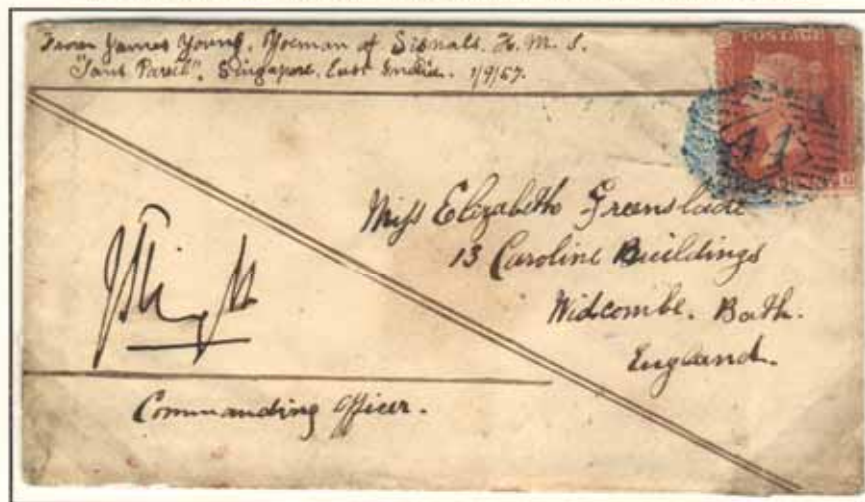 From James Young, Yoeman of Signals. H. M. S.
"Sans Pareil". Singapore. East Indies. 1/9/57.
POSTAGE
Miss Elizabeth Greenslade
13 Caroline Buildings
Widcombe. Bath.
England.
Commanding Officer.